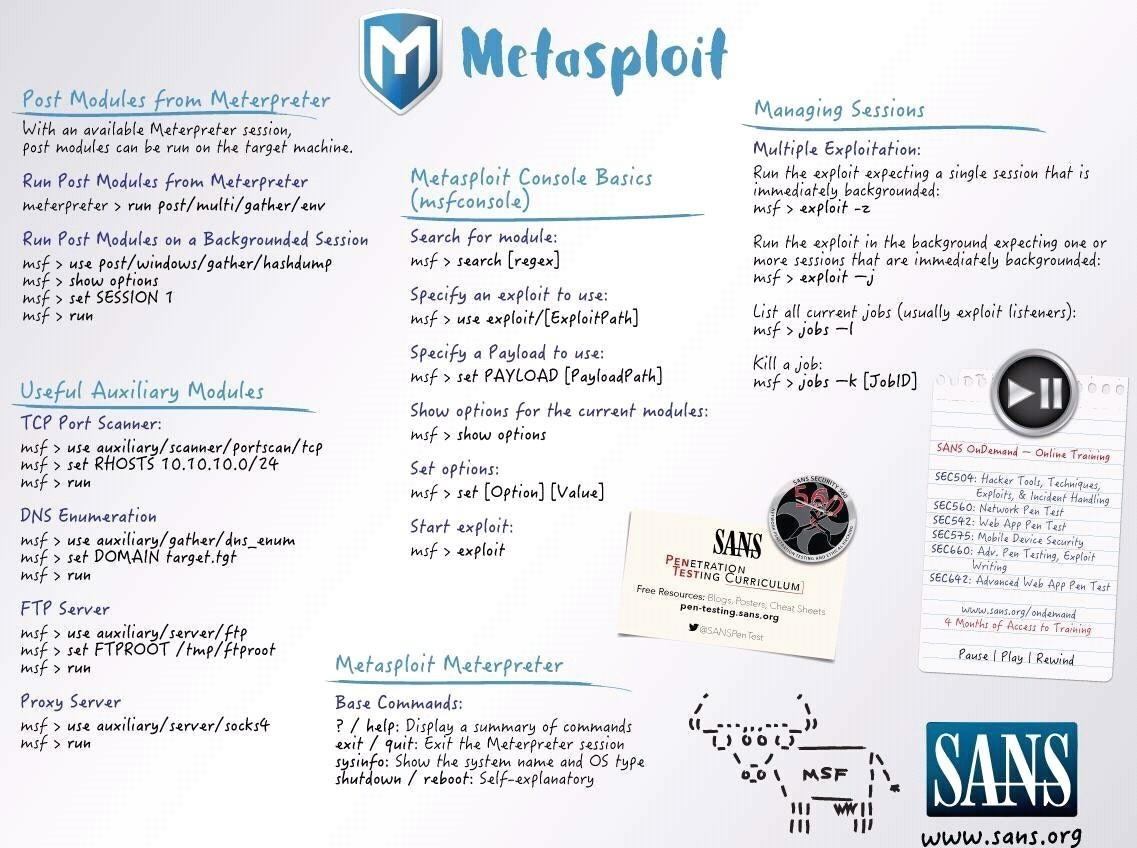 Metasploit
Post Modules from Meterpreter
With an available Meterpreter session,
post modules can be run on the target machine.
Run Post Modules from Meterpreter
meterpreter > run post/multi/gather/env
Run Post Modules on a Backgrounded Session
msf > use post/windows/gather/hashdump
msf > show options
msf > set SESSION 1
msf > run
Useful Auxiliary Modules
TCP Port Scanner:
msf > use auxiliary/scanner/portscan/tcp
msf > set RHOSTS 10.10.10.0/24
msf > run
DNS Enumeration
msf > use auxiliary/gather/dns_enum
msf > set DOMAIN target.tgt
msf > run
FTP Server
msf > use auxiliary/server/ftp
msf > set FTPROOT /tmp/ftproot
msf > run
Proxy Server
msf > use auxiliary/server/socks4
msf > run
Metasploit Console Basics
(msfconsole)
Search for module:
msf > search [regex]
Specify an exploit to use:
msf > use exploit/[ExploitPath]
Specify a Payload to use:
msf > set PAYLOAD [PayloadPath]
Show options for the current modules:
msf > show options
Set options:
msf > set [Option] [Value]
Start exploit:
msf > exploit
Metasploit Meterpreter
Base Commands:
? / help: Display a summary of commands
exit / quit: Exit the Meterpreter session
sysinfo: Show the system name and OS type
shutdown / reboot: Self-explanatory
Managing Sessions
Multiple Exploitation:
Run the exploit expecting a single session that is
immediately backgrounded:
msf > exploit -z
Run the exploit in the background expecting one or
more sessions that are immediately backgrounded:
msf > exploit –j
List all current jobs (usually exploit listeners):
msf > jobs –l
Kill a job:
msf > jobs –k [JobID]
SANS OnDemand – Online Training
SEC504: Hacker Tools, Techniques,
Exploits, & Incident Handling
SEC560: Network Pen Test
SEC542: Web App Pen Test
SEC575: Mobile Device Security
SEC660: Adv. Pen Testing, Exploit
Writing
SEC642: Advanced Web App Pen Test
www.sans.org/ondemand
4 Months of Access to Training
Pause | Play | Rewind
SANS SECURITY 560
560
NETWORK PENETRATION TESTING AND ETHICAL HACKING
SANS
PENETRATION
TESTING CURRICULUM
Free Resources: Blogs, Posters, Cheat Sheets
pen-testing.sans.org
@SANSPenTest
MSF
SANS
www.sans.org